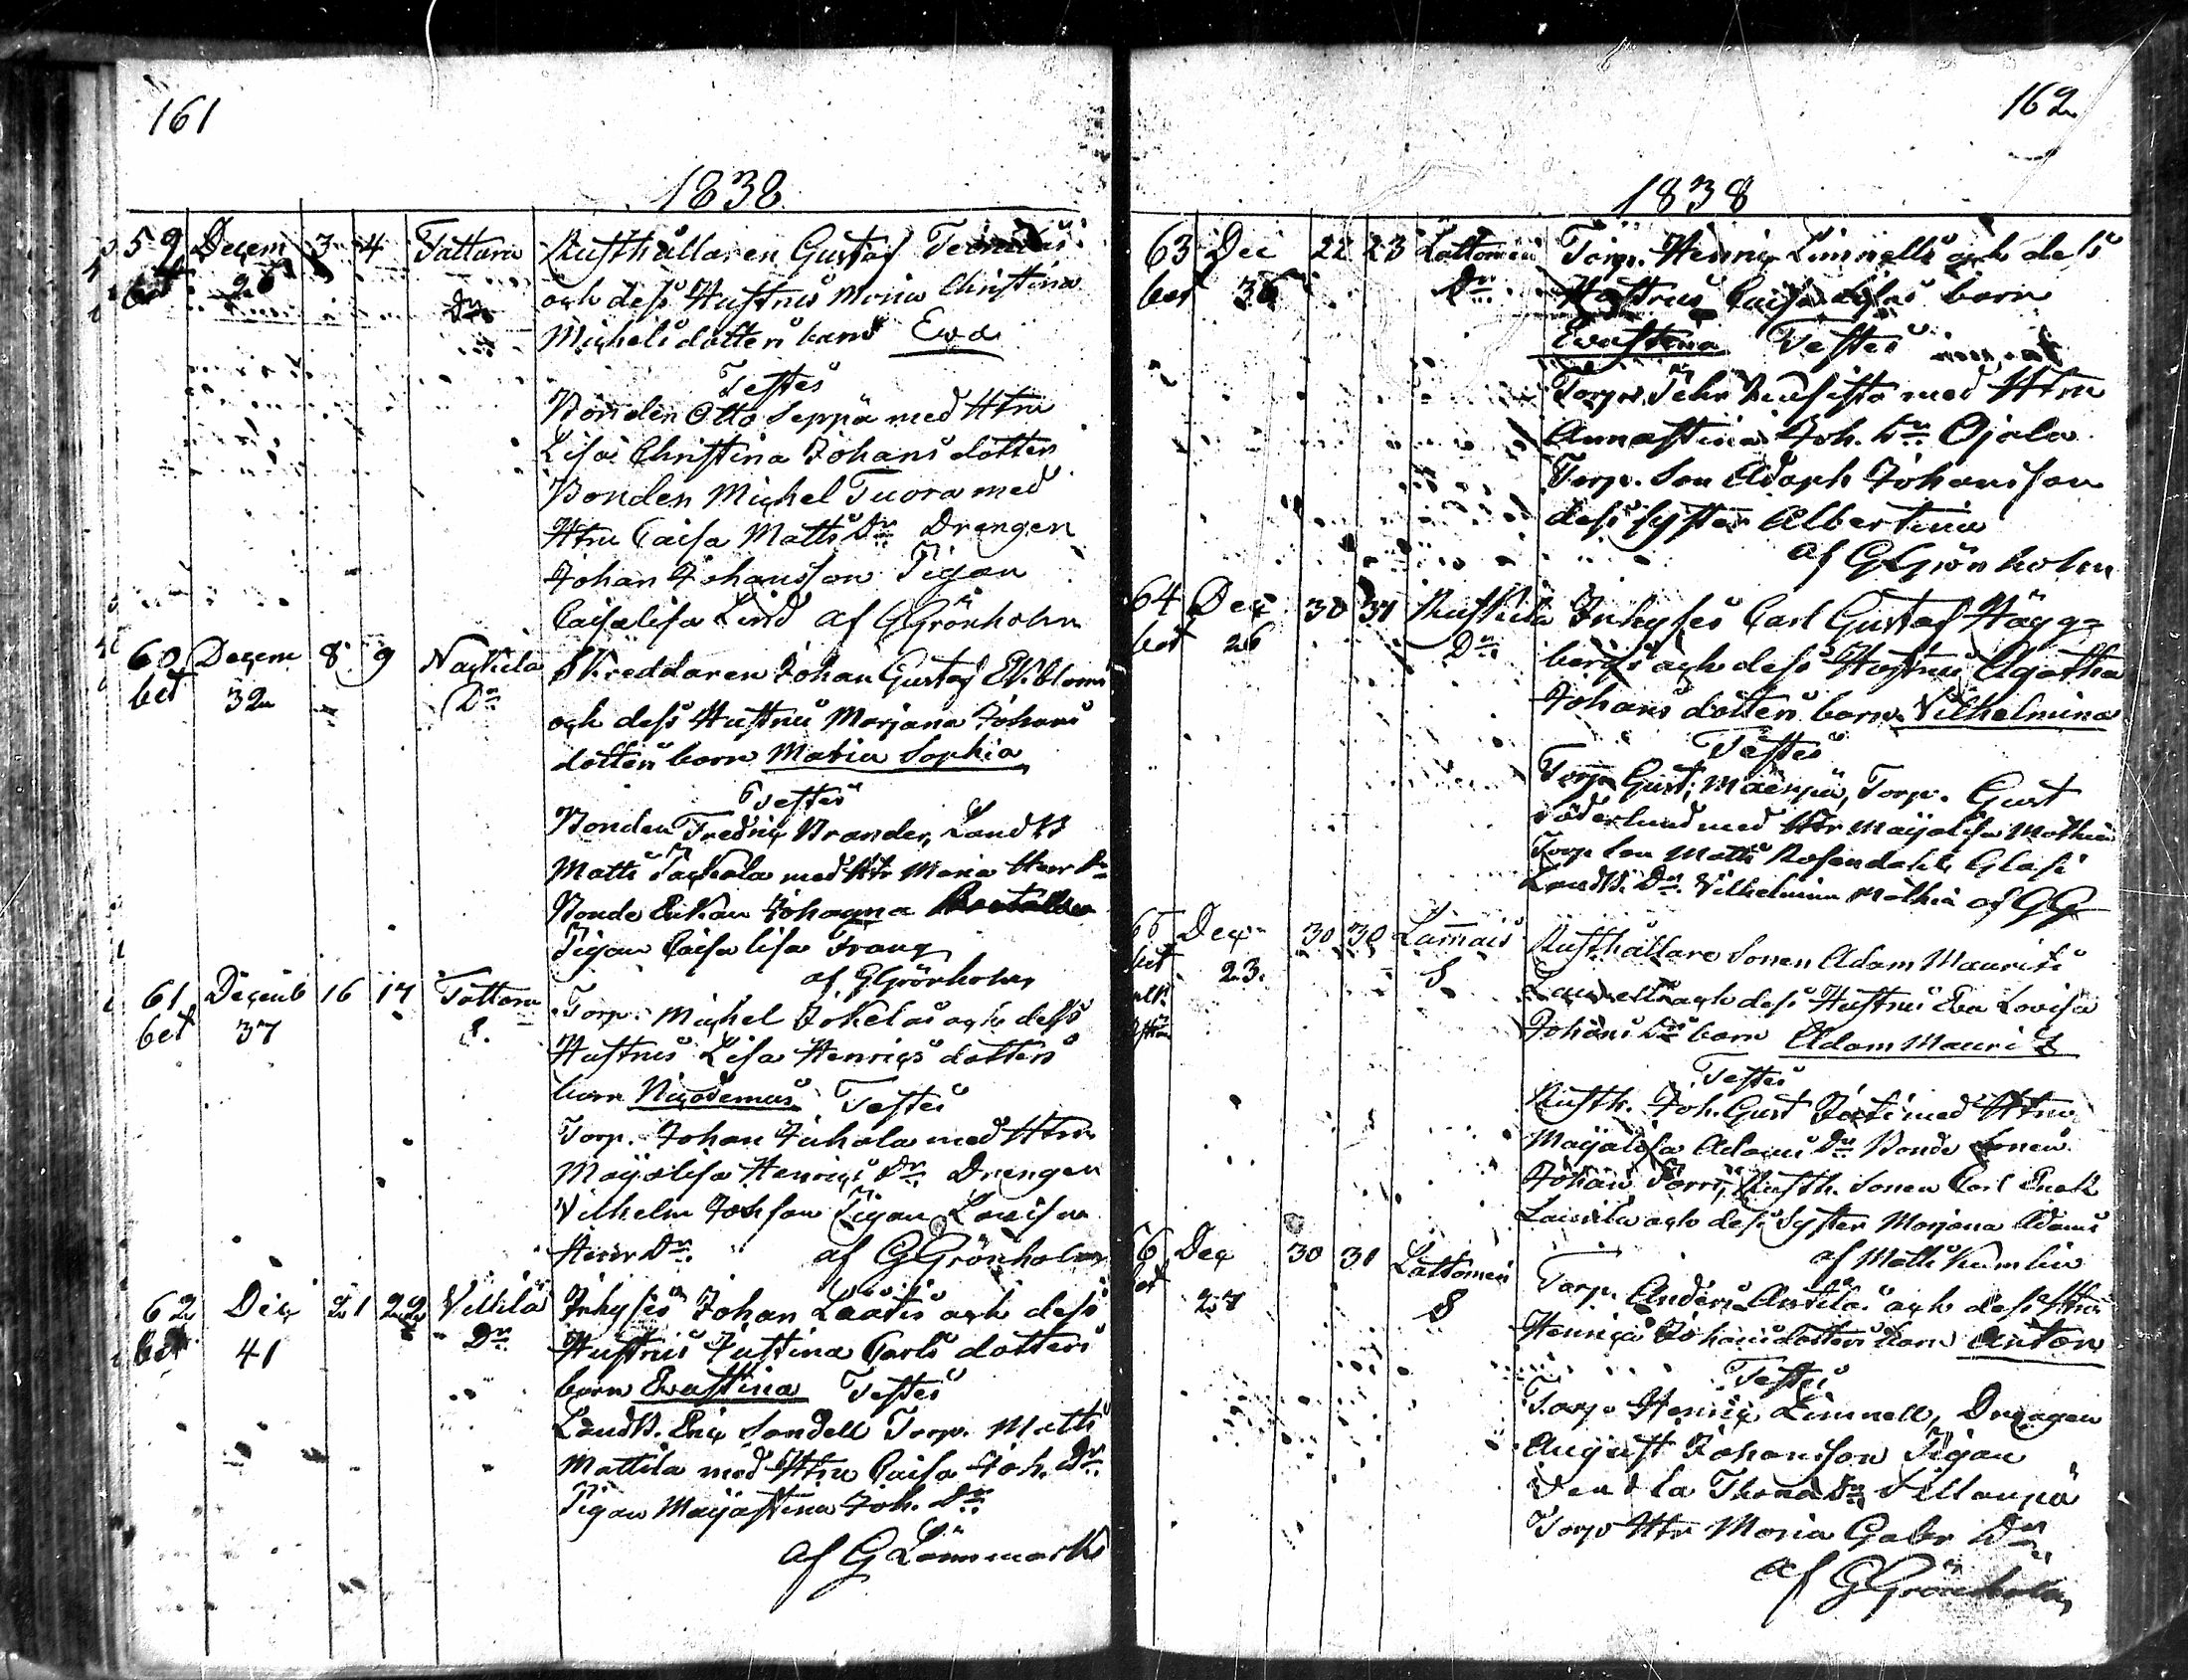 161
1838
59 Decem 3 4 Tattara Rusthållaren Gustaf
bet 28 Dr och dess Hustrus Maria Christina
Michelsdotters barn Eva
Testes
Bonden Otto Seppä med Htru
Lisa Christina Johansdotter
Bonden Michel Tuora med
Htru Caisa Matts Dr Drengen
Johan Johansson Pigan
Caisalisa Lind af GGrönholm
60 Decem 8 9 Nackila Skreddaren Johan Gustaf Ekbloms
bet 32 Dr och dess Hustrus Marjana Johans
dotters barn Maria Sophia
Testes
Bonden Fredric Brander, LandB
Matts med Htr Maria Henr Dr
Bonde Enkan Johanna
Pigan Caisalisa Franz
af GGrönholm
61 Decemb 16 17 Tattara Torp. Michel Jokelas och dess
bet 37 S. Hustrus Lisa Henricsdotters
barn Nicodemus Testes
Torp. Johan Juhola med Htru
Mayalisa Henrics Dr Drengen
Vilhelm Johsson Pigan Lovisa
Henr Dr. af GGrönholm
62 Dec 21 22 Villilä Inhyses Johan Laatis och dess
bet 41 Dr Hustrus Justina Carls dotters
barn Evastina Testes
LandB. Eric Sandell Torp. Matts
Mattila med Htru Caisa Joh. Dr.
Pigan Mayastina Joh. Dr
af G Lönnmark
162
1838
63 Dec 22 23 Lattomeri Torp. Henric Linnells och dess
bet 36 Dr Hustrus Caisa barn
Evastina Testes
Torp. med Htru
Annastina Joh. Dr Ojala
Torp. Son Adoph Johansson
dess syster Albertina
af GGrönholm
64 Dec 30 31 Ruskila Inhyses Carl Gustaf Hägg=
bet 26 Dr bergs och dess Hustrus Agatha
Johans dotters barn Vilhelmina
Testes
Torp Gust. Mäenpä, Torp. Gust
Söderlund med Htr Mayalisa Mathiae
Torp Son Matts Rosendahl,
LandB. Dr. Vilhelmina Mathiae af GG
65 Dec 30 30 Lammais Rusthållare Sonen Adam Maurits
bet 23. S och dess Hustrus Eva Lovisa
Johans Drs barn Adam Maurits
Testes
Rusth. Joh. Gust med Htru
Mayalisa Adams Dr Bonde Sonen
Johan Sorri, Rusth. Sonen Carl Enok
Launila och dess Syster Marjana Adams
af Matts Kumlin
66 Dec 30 31 Lattomeri Torp. Anders Anttilas och dess Htrus
bet 27 S Henrica Johansdotters barn Anton
Testes
Torp Henric Linnell, Drengen
August Johansson Pigan
Vendla Thomae Dr Villanpä
Torp Htr Maria Gabr Dr
af GGrönholm